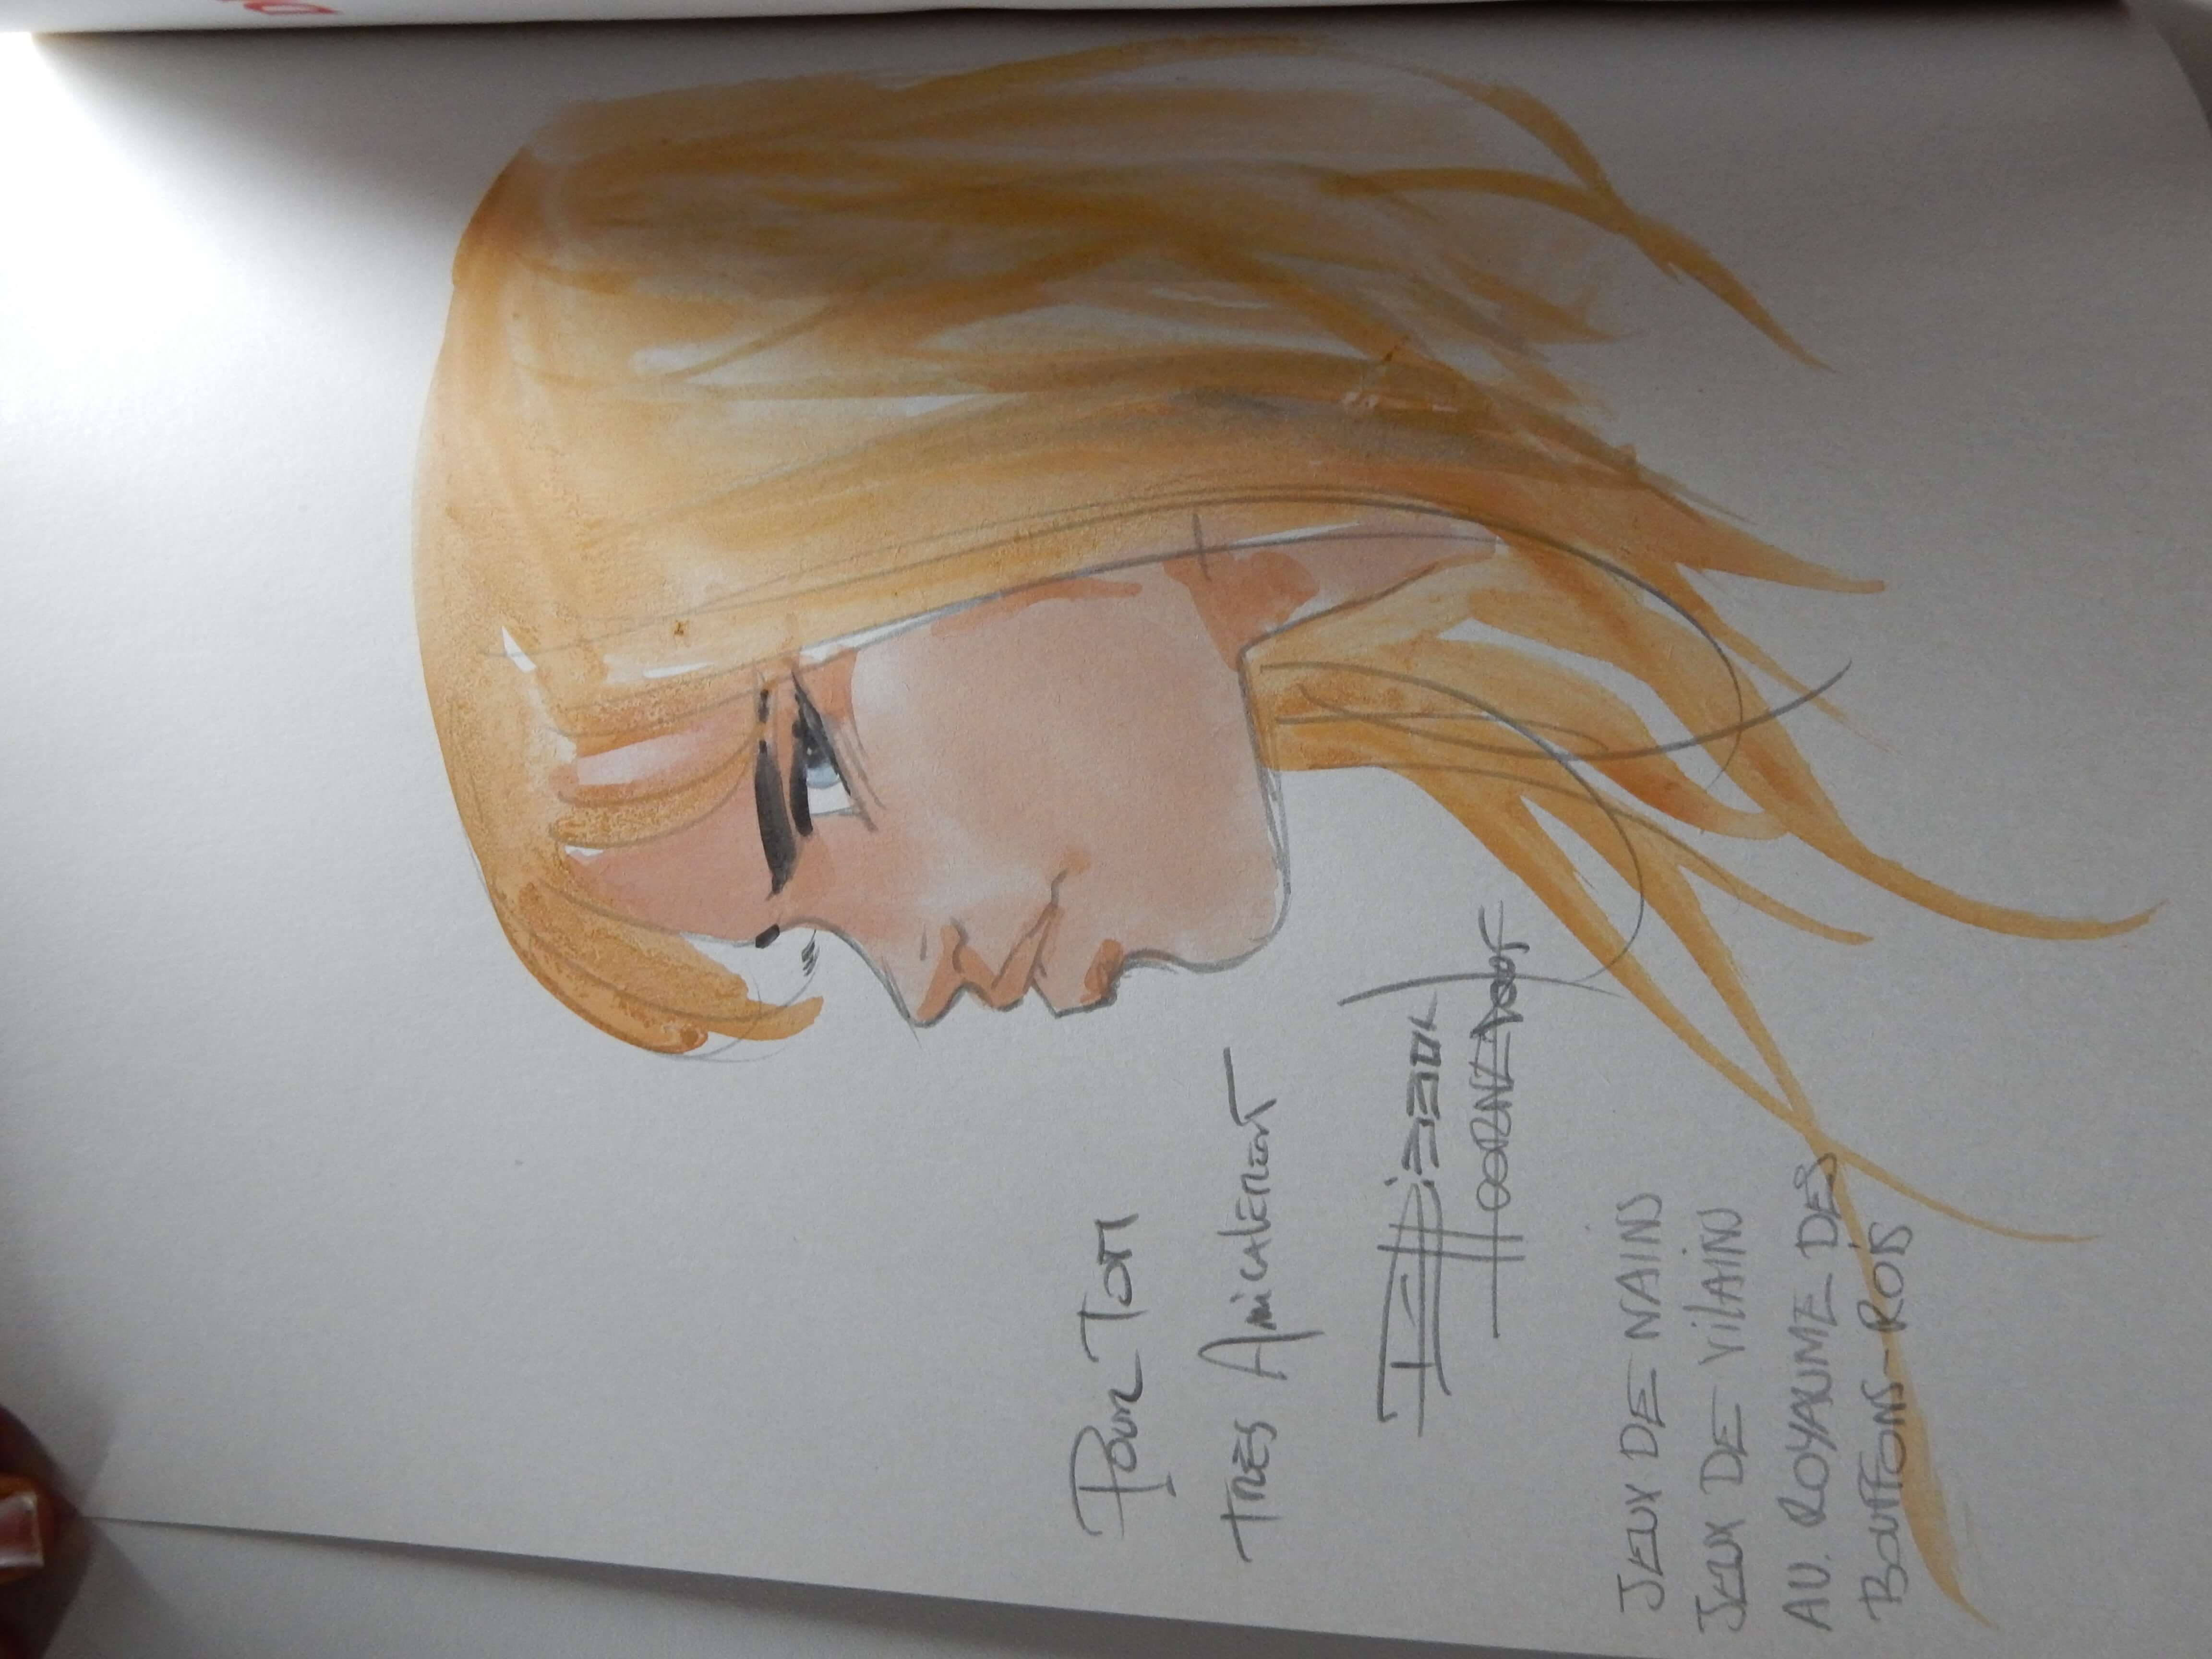 Pour Tom
très Amicalement
JEUX DE NAINS
JEUX DE VILAINS
AU ROYAUME DES
BOUFFONS-ROIS